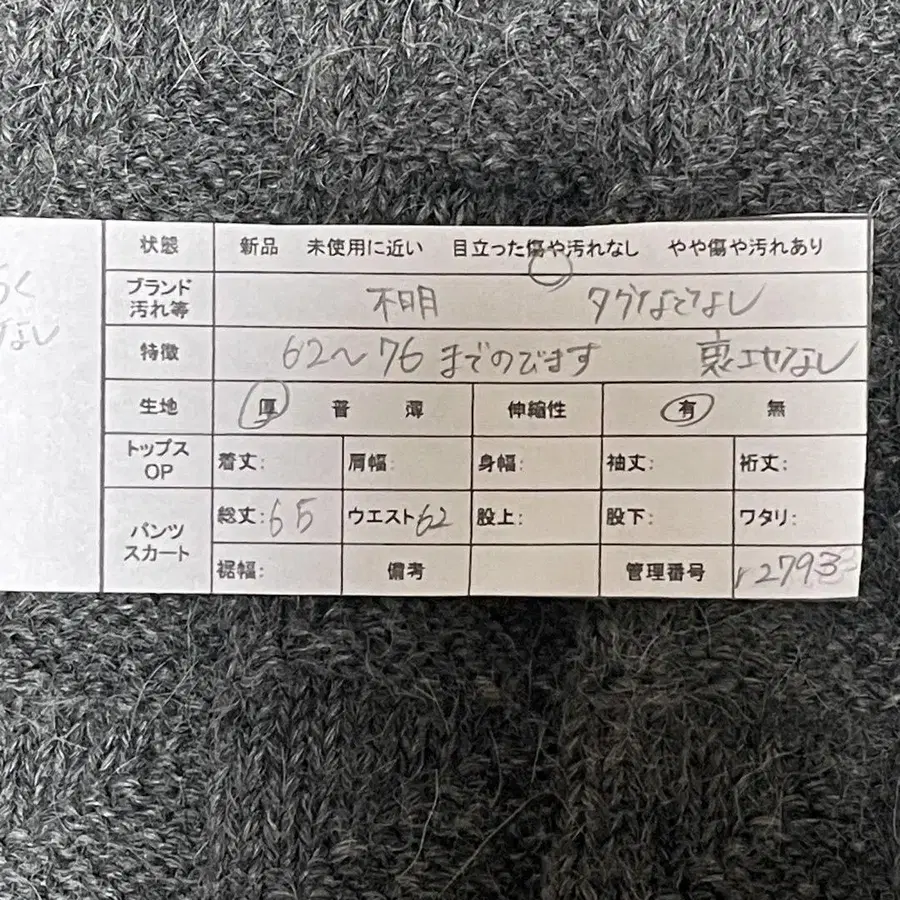 状態 新品 未使用に近い 目立った傷や汚れなし やや傷や汚れあり
ブランド
汚れ等 不明 タグなどなし
特徴 62〜76までのびます 裏地なし
生地 厚 普 薄 伸縮性 有 無
トップス
OP 着丈: 肩幅: 身幅: 袖丈: 裄丈:
パンツ
スカート 総丈:65 ウエスト62 股上: 股下: ワタリ:
裾幅: 備考 管理番号 r2793
なし